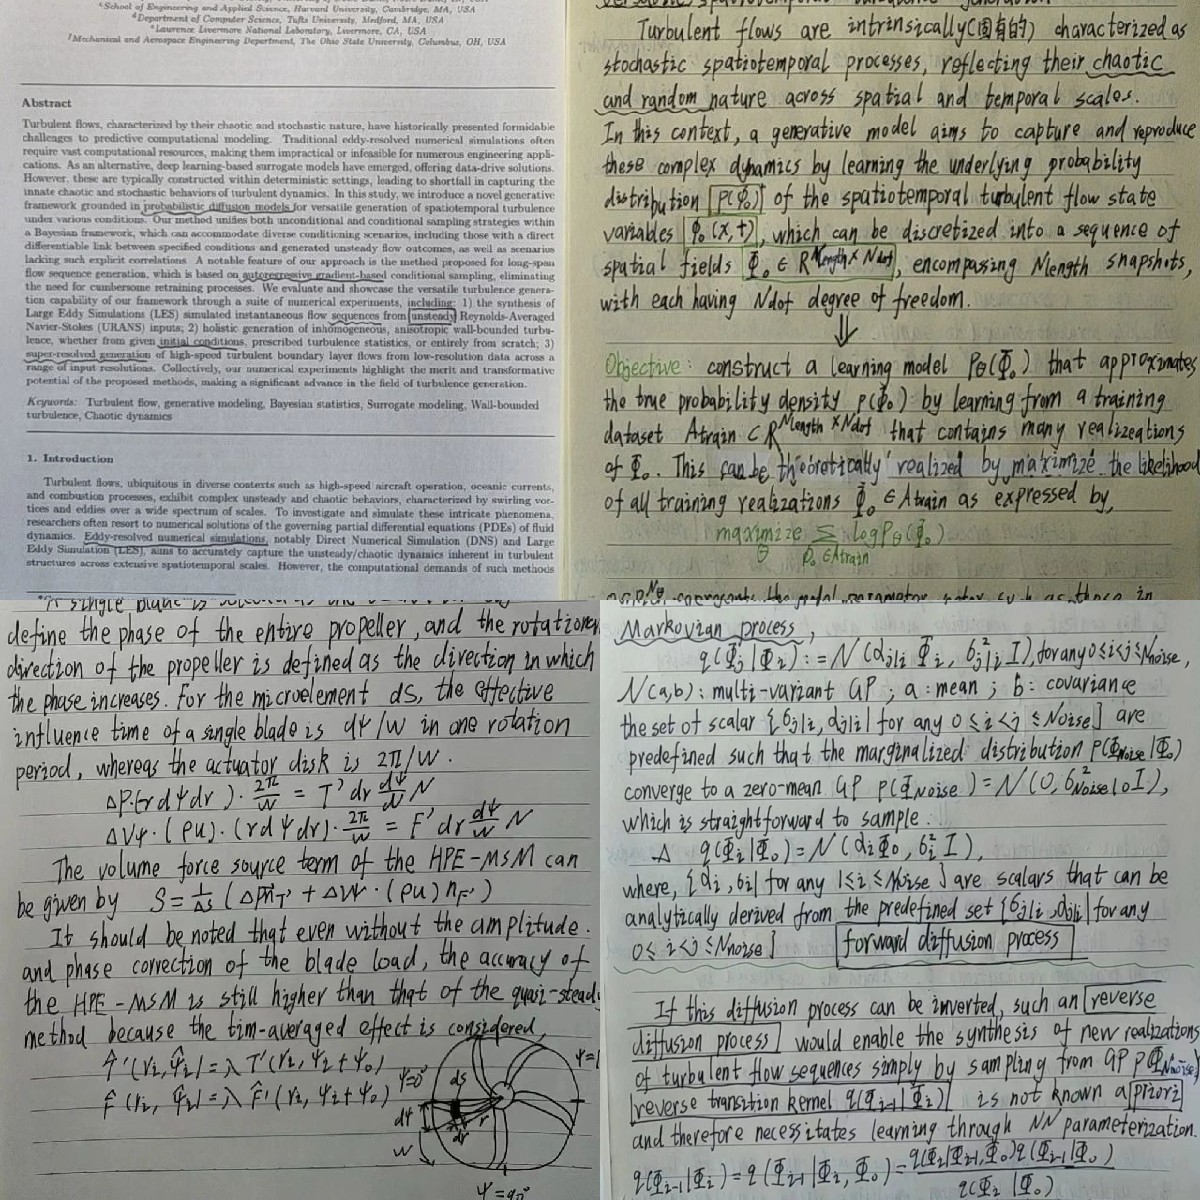 ᶜSchool of Engineering and Applied Science, Harvard University, Cambridge, MA, USA
ᵈDepartment of Computer Science, Tufts University, Medford, MA, USA
ᵉLaurence Livermore National Laboratory, Livermore, CA, USA
ᶠMechanical and Aerospace Engineering Department, The Ohio State University, Columbus, OH, USA
Abstract
Turbulent flows, characterized by their chaotic and stochastic nature, have historically presented formidable
challenges to predictive computational modeling. Traditional eddy-resolved numerical simulations often
require vast computational resources, making them impractical or infeasible for numerous engineering appli-
cations. As an alternative, deep learning-based surrogate models have emerged, offering data-drive solutions.
However, these are typically constructed within deterministic settings, leading to shortfall in capturing the
innate chaotic and stochastic behaviors of turbulent dynamics. In this study, we introduce a novel generative
framework grounded in probabilistic diffusion models for versatile generation of spatiotemporal turbulence
under various conditions. Our method unifies both unconditional and conditional sampling strategies within
a Bayesian framework, which can accommodate diverse conditioning scenarios, including those with a direct
differentiable link between specified conditions and generated unsteady flow outcomes, as well as scenarios
lacking such explicit correlations. A notable feature of our approach is the method proposed for long-span
flow sequence generation, which is based on autoregressive gradient-based conditional sampling, eliminating
the need for cumbersome retraining processes. We evaluate and showcase the versatile turbulence genera-
tion capability of our framework through a suite of numerical experiments, including: 1) the synthesis of
Large Eddy Simulations (LES) simulated instantaneous flow sequences from unsteady Reynolds-Averaged
Navier-Stokes (URANS) inputs; 2) holistic generation of inhomogeneous, anisotropic wall-bounded turbu-
lence, whether from given initial conditions, prescribed turbulence statistics, or entirely from scratch; 3)
super-resolved generation of high-speed turbulent boundary layer flows from low-resolution data across a
range of input resolutions. Collectively, our numerical experiments highlight the merit and transformative
potential of the proposed methods, making a significant advance in the field of turbulence generation.
Keywords: Turbulent flow, generative modeling, Bayesian statistics, Surrogate modeling, Wall-bounded
turbulence, Chaotic dynamics
1. Introduction
Turbulent flows, ubiquitous in diverse contexts such as high-speed aircraft operation, oceanic currents,
and combustion processes, exhibit complex unsteady and chaotic behaviors, characterized by swirling vor-
tices and eddies over a wide spectrum of scales. To investigate and simulate these intricate phenomena,
researchers often resort to numerical solutions of the governing partial differential equations (PDEs) of fluid
dynamics. Eddy-resolved numerical simulations, notably Direct Numerical Simulation (DNS) and Large
Eddy Simulation (LES), aims to accurately capture the unsteady/chaotic dynamics inherent in turbulent
structures across extensive spatiotemporal scales. However, the computational demands of such methods
Turbulent flows are intrinsically(固有的) characterized as
stochastic spatiotemporal processes, reflecting their chaotic
and random nature across spatial and temporal scales.
In this context, a generative model aims to capture and reproduce
these complex dynamics by learning the underlying probability
distribution p(Φ₀) of the spatiotemporal turbulent flow state
variables Φ₀(x,t), which can be discretized into a sequence of
spatial fields Φ₀ ∈ R^Nlength×Ndof, encompasing Nlength snapshots,
with each having Ndof degree of freedom.
⇓
Objective: construct a learning model Pθ(Φ₀) that approximates
the true probability density p(Φ₀) by learning from a training
dataset Atrain ⊂ R^Nlength×Ndof that contains many realizeations
of Φ₀. This can be theoretically realized by maximize the likelihood
of all training realizations Φ₀ ∈ Atrain as expressed by,
maximize Σ log Pθ(Φ₀)
θ Φ₀∈Atrain
define the phase of the entire propeller, and the rotation
direction of the propeller is defined as the direction in which
the phase increases. For the microelement ds, the effective
influence time of a single blade is dψ/w in one rotation
period, whereas the actuator disk is 2π/w.
ΔP·(rdψdr)·2π/w = T'dr dψ/w N
ΔVψ·(ρu)·(rdψdr)·2π/w = F'dr dψ/w N
The volume force source term of the HPE-MSM can
be given by S = 1/Δs (Δpn_T' + ΔW·(ρu)n_F')
It should be noted that even without the amplitude.
and phase correction of the blade load, the accuracy of
the HPE-MSM is still higher than that of the quasi-steady
method because the tim-averaged effect is considered,
T̂'(ri, ψ̂i) = λT'(ri, ψi+ψ₀)
F̂'(ri, ψ̂i) = λF̂'(ri, ψi+ψ₀)
ψ=0°
ds
dψ
dr
r
w
Markovian process,
q(Φj|Φi) := N(αj|i Φi, σ²j|i I), for any 0≤i<j≤Nnoise,
N(a,b): multi-variant GP; a: mean; b: covariance
the set of scalar {σj|i, αj|i| for any 0≤i<j≤Nnoise} are
predefined such that the marginalized distribution p(ΦNnoise|Φ₀)
converge to a zero-mean GP p(ΦNnoise) = N(0, σ²Nnoise|0 I),
which is straightforward to sample:
Δ q(Φi|Φ₀) = N(αiΦ₀, σi²I),
where, {αi, σi| for any 1≤i≤Nnoise} are scalars that can be
analytically derived from the predefined set {σj|i, αj|i| for any
0≤i<j≤Nnoise} forward diffusion process
If this diffusion process can be inverted, such an reverse
diffusion process would enable the synthesis of new realizations
of turbulent flow sequences simply by sampling from GP p(ΦNnoise)
reverse transition kernel q(Φi-1|Φi) is not known a priori
and therefore necessitates learning through NN parameterization.
q(Φi-1|Φi) = q(Φi-1|Φi, Φ₀) = q(Φi|Φi-1, Φ₀)q(Φi-1|Φ₀) / q(Φi|Φ₀)